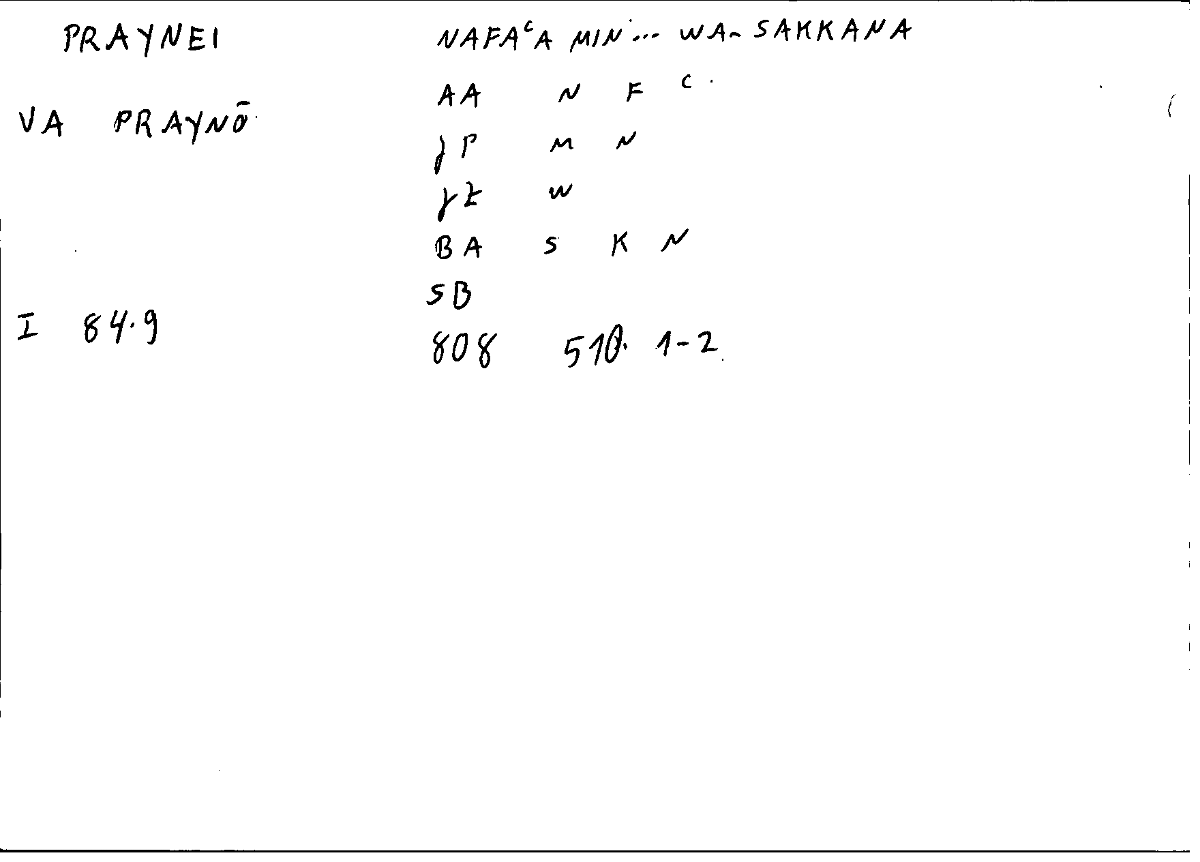 PRAYNEI NAFAᶜA MIN ... WA-SAKKANA
AA N F ᶜ
VA PRAYNŌ
γP M N
γŁ W
BA S K N
SB
I 84.9 808 510. 1-2